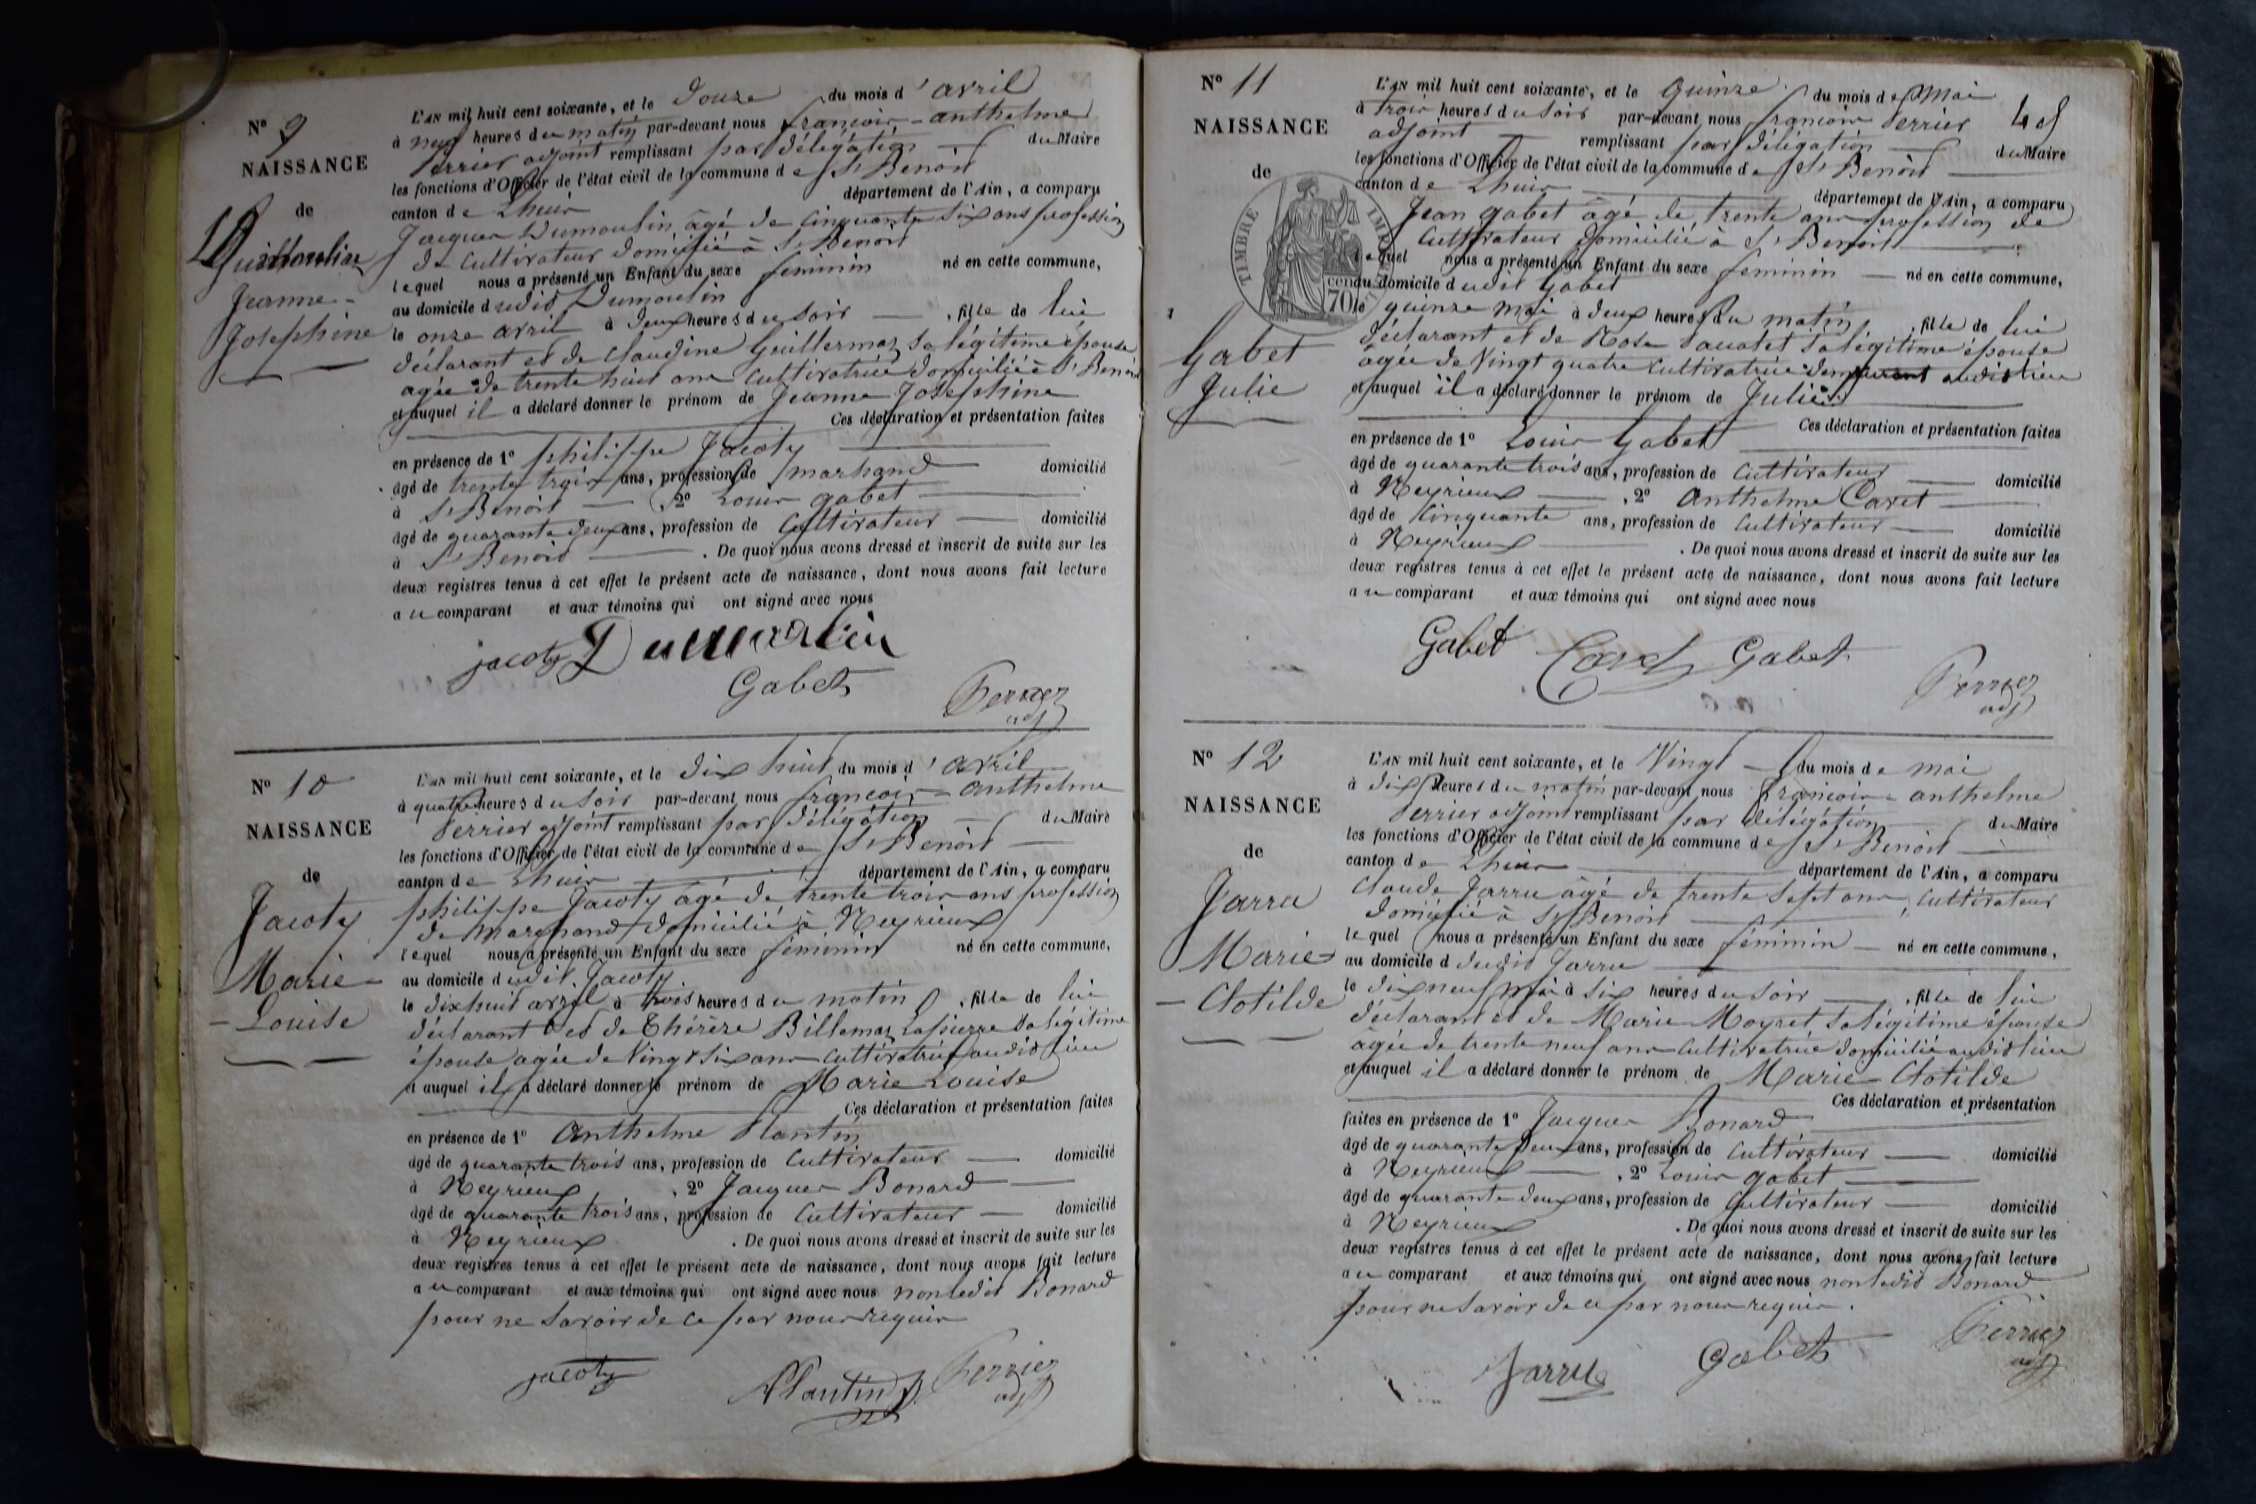 N° 9
NAISSANCE
de
Dumoulin
Jeanne-
Josephine
L'AN mil huit cent soixante, et le Douze du mois d'avril
à neuf heures du matin par-devant nous françois-anthelme
Perrier adjoint remplissant par délégation du Maire
les fonctions d'Officier de l'état civil de la commune de St Benoit
canton de Lhuis département de l'Ain, a comparu
Jacques Dumoulin âgé de cinquante six ans profession
de cultivateur domicilié à St Benoit
lequel nous a présenté un Enfant du sexe féminin né en cette commune,
au domicile dudit Dumoulin
le onze avril à deux heures du soir, fille de lui
déclarant et de Claudine Guillermaz sa légitime épouse
agée de trente huit ans cultivatrice domiciliée à St Benoit
et auquel il a déclaré donner le prénom de Jeanne Josephine
Ces déclaration et présentation faites
en présence de 1° philippe Jacoty
âgé de trente trois ans, profession de marhand domicilié
à St Benoit , 2° Louis gabet
âgé de quarante deux ans, profession de Cultivateur domicilié
à St Benoit . De quoi nous avons dressé et inscrit de suite sur les
deux registres tenus à cet effet le présent acte de naissance, dont nous avons fait lecture
au comparant et aux témoins qui ont signé avec nous
jacoty Dumoulin
Gabet
Perrier
adj
N° 10
NAISSANCE
de
Jacoty
Marie-
-Louise
L'AN mil huit cent soixante, et le dix huit du mois d'avril
à quatre heures du soir par-devant nous françois-anthelme
Perrier adjoint remplissant par délégation du Maire
les fonctions d'Officier de l'état civil de la commune de St Benoit
canton de Lhuis département de l'Ain, a comparu
philippe Jacoty agé de trente trois ans profession
de marchand domicilié à Neyrieux
lequel nous a présenté un Enfant du sexe féminin né en cette commune,
au domicile dudit Jacoty
le dixhuit avril à trois heures du matin, fille de lui
déclarant et de Thérèze Billemaz Lapierre sa légitime
épouse agée de Vingt six ans cultivatrice audit lieu
et auquel il a déclaré donner le prénom de Marie Louise
Ces déclaration et présentation faites
en présence de 1° Anthelme Plantin
âgé de quarante trois ans, profession de Cultivateur domicilié
à Neyrieux , 2° Jacques Bonard
âgé de quarante trois ans, profession de Cultivateur domicilié
à Neyrieux . De quoi nous avons dressé et inscrit de suite sur les
deux registres tenus à cet effet le présent acte de naissance, dont nous avons fait lecture
au comparant et aux témoins qui ont signé avec nous non ledit Bonard
pour ne savoir de ce par nous requis
jacoty
Plantin
Perrier
adj
N° 11
NAISSANCE
de
TIMBRE IMPERIAL
70
Gabet
Julie
L'AN mil huit cent soixante, et le quinze du mois de Mai
à trois heures du soir par-devant nous françois Perrier
adjoint remplissant par délégation du Maire
les fonctions d'Officier de l'état civil de la commune de St Benoit
canton de Lhuis département de l'Ain, a comparu
Jean gabet âgé de trente ans profession de
Cultivateur domicilié à St Benoit
lequel nous a présenté un Enfant du sexe féminin né en cette commune,
au domicile dudit Gabet
le quinze mai à deux heures du matin, fille de lui
déclarant et de Rose sa légitime épouse
agée de Vingt quatre cultivatrice demeurant audit lieu
et auquel il a déclaré donner le prénom de Julie
Ces déclaration et présentation faites
en présence de 1° Louis Gabet
âgé de quarante trois ans, profession de Cultivateur domicilié
à Neyrieux , 2° anthelme Caret
âgé de Cinquante ans, profession de Cultivateur domicilié
à Neyrieux . De quoi nous avons dressé et inscrit de suite sur les
deux registres tenus à cet effet le présent acte de naissance, dont nous avons fait lecture
au comparant et aux témoins qui ont signé avec nous
Gabet Caret Gabet
Perrier
adj
N° 12
NAISSANCE
de
Jarru
Marie-
-Clotilde
L'AN mil huit cent soixante, et le Vingt du mois de mai
à dix heures du matin par-devant nous françois-anthelme
Perrier adjoint remplissant par délégation du Maire
les fonctions d'Officier de l'état civil de la commune de St Benoit
canton de Lhuis département de l'Ain, a comparu
Claude Jarru âgé de trente sept ans, cultivateur
domicilié à St Benoit
lequel nous a présenté un Enfant du sexe féminin né en cette commune,
au domicile d dudit Jarru
le dix neuf mai à six heures du soir, fille de lui
déclarant et de Marie Moyret sa légitime épouse
âgée de trente neuf ans cultivatrice domiciliée audit lieu
et auquel il a déclaré donner le prénom de Marie-Clotilde
Ces déclaration et présentation
faites en présence de 1° Jacques Bonard
âgé de quarante deux ans, profession de Cultivateur domicilié
à Neyrieux , 2° Louis gabet
âgé de quarante deux ans, profession de Cultivateur domicilié
à Neyrieux . De quoi nous avons dressé et inscrit de suite sur les
deux registres tenus à cet effet le présent acte de naissance, dont nous avons fait lecture
au comparant et aux témoins qui ont signé avec nous non ledit Bonard
pour ne savoir de ce par nous requis.
Jarru
Gabet
Perrier
adj